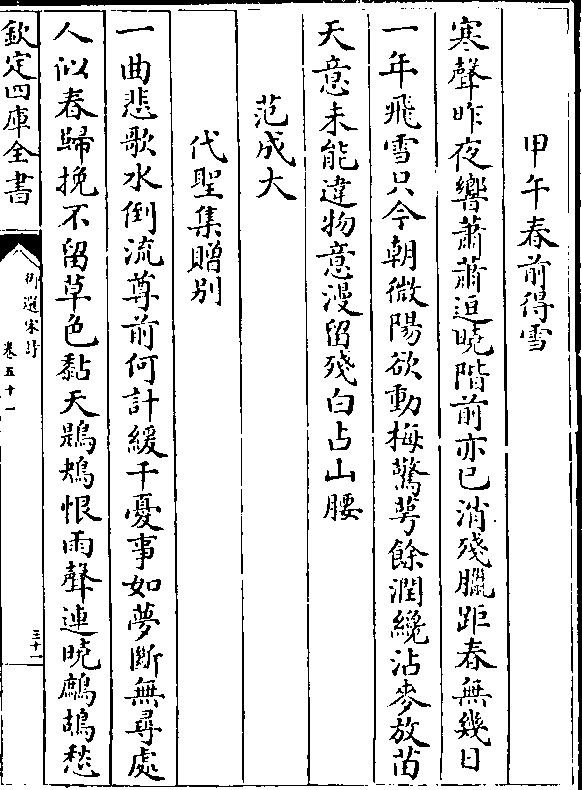 甲午春前得雪
寒聲昨夜響蕭蕭逗曉階前亦已消殘臘距春無幾日
一年飛雪只今朝微陽欲動梅驚萼餘潤纔沾麥放苗
天意未能違物意漫留殘白占山腰
范成大
代聖集贈別
一曲悲歌水倒流尊前何計緩千憂事如夢斷無尋處
人似春歸挽不留草色黏天鶗鴂恨雨聲連曉鷓鴣愁
欽定四庫全書
御選宋詩
卷五十一
三十一